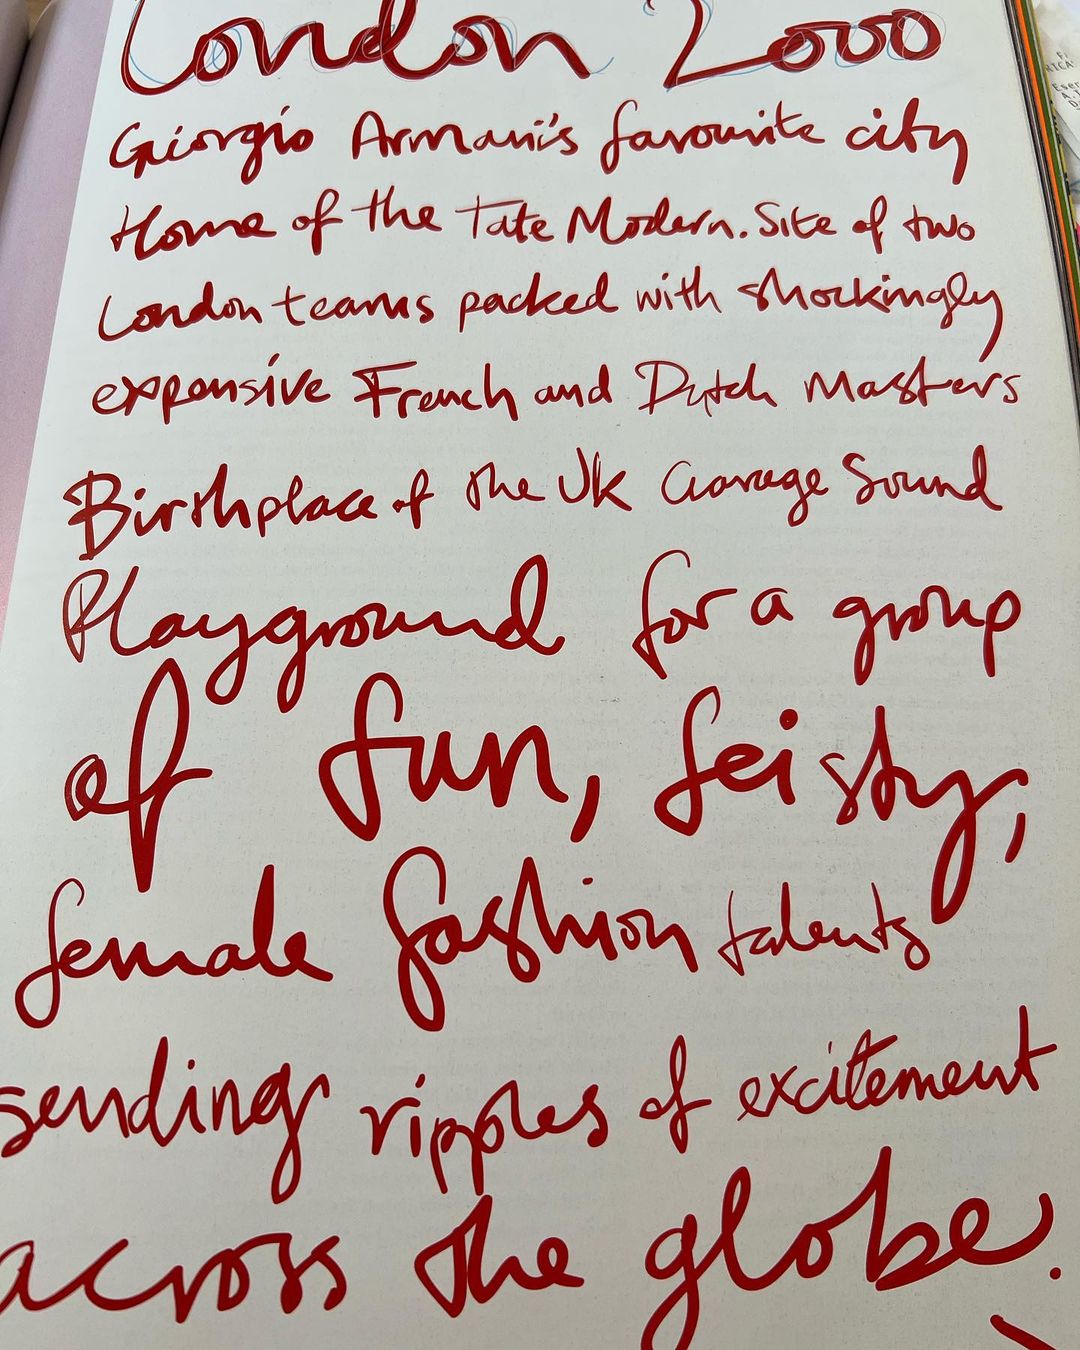 London 2000
Giorgio Armani's favourite city
Home of the Tate Modern. Site of two
London teams packed with shockingly
expensive French and Dutch Masters
Birthplace of the UK Garage Sound
Playground for a group
of fun, feisty,
female fashion talents
sending ripples of excitement
across the globe.